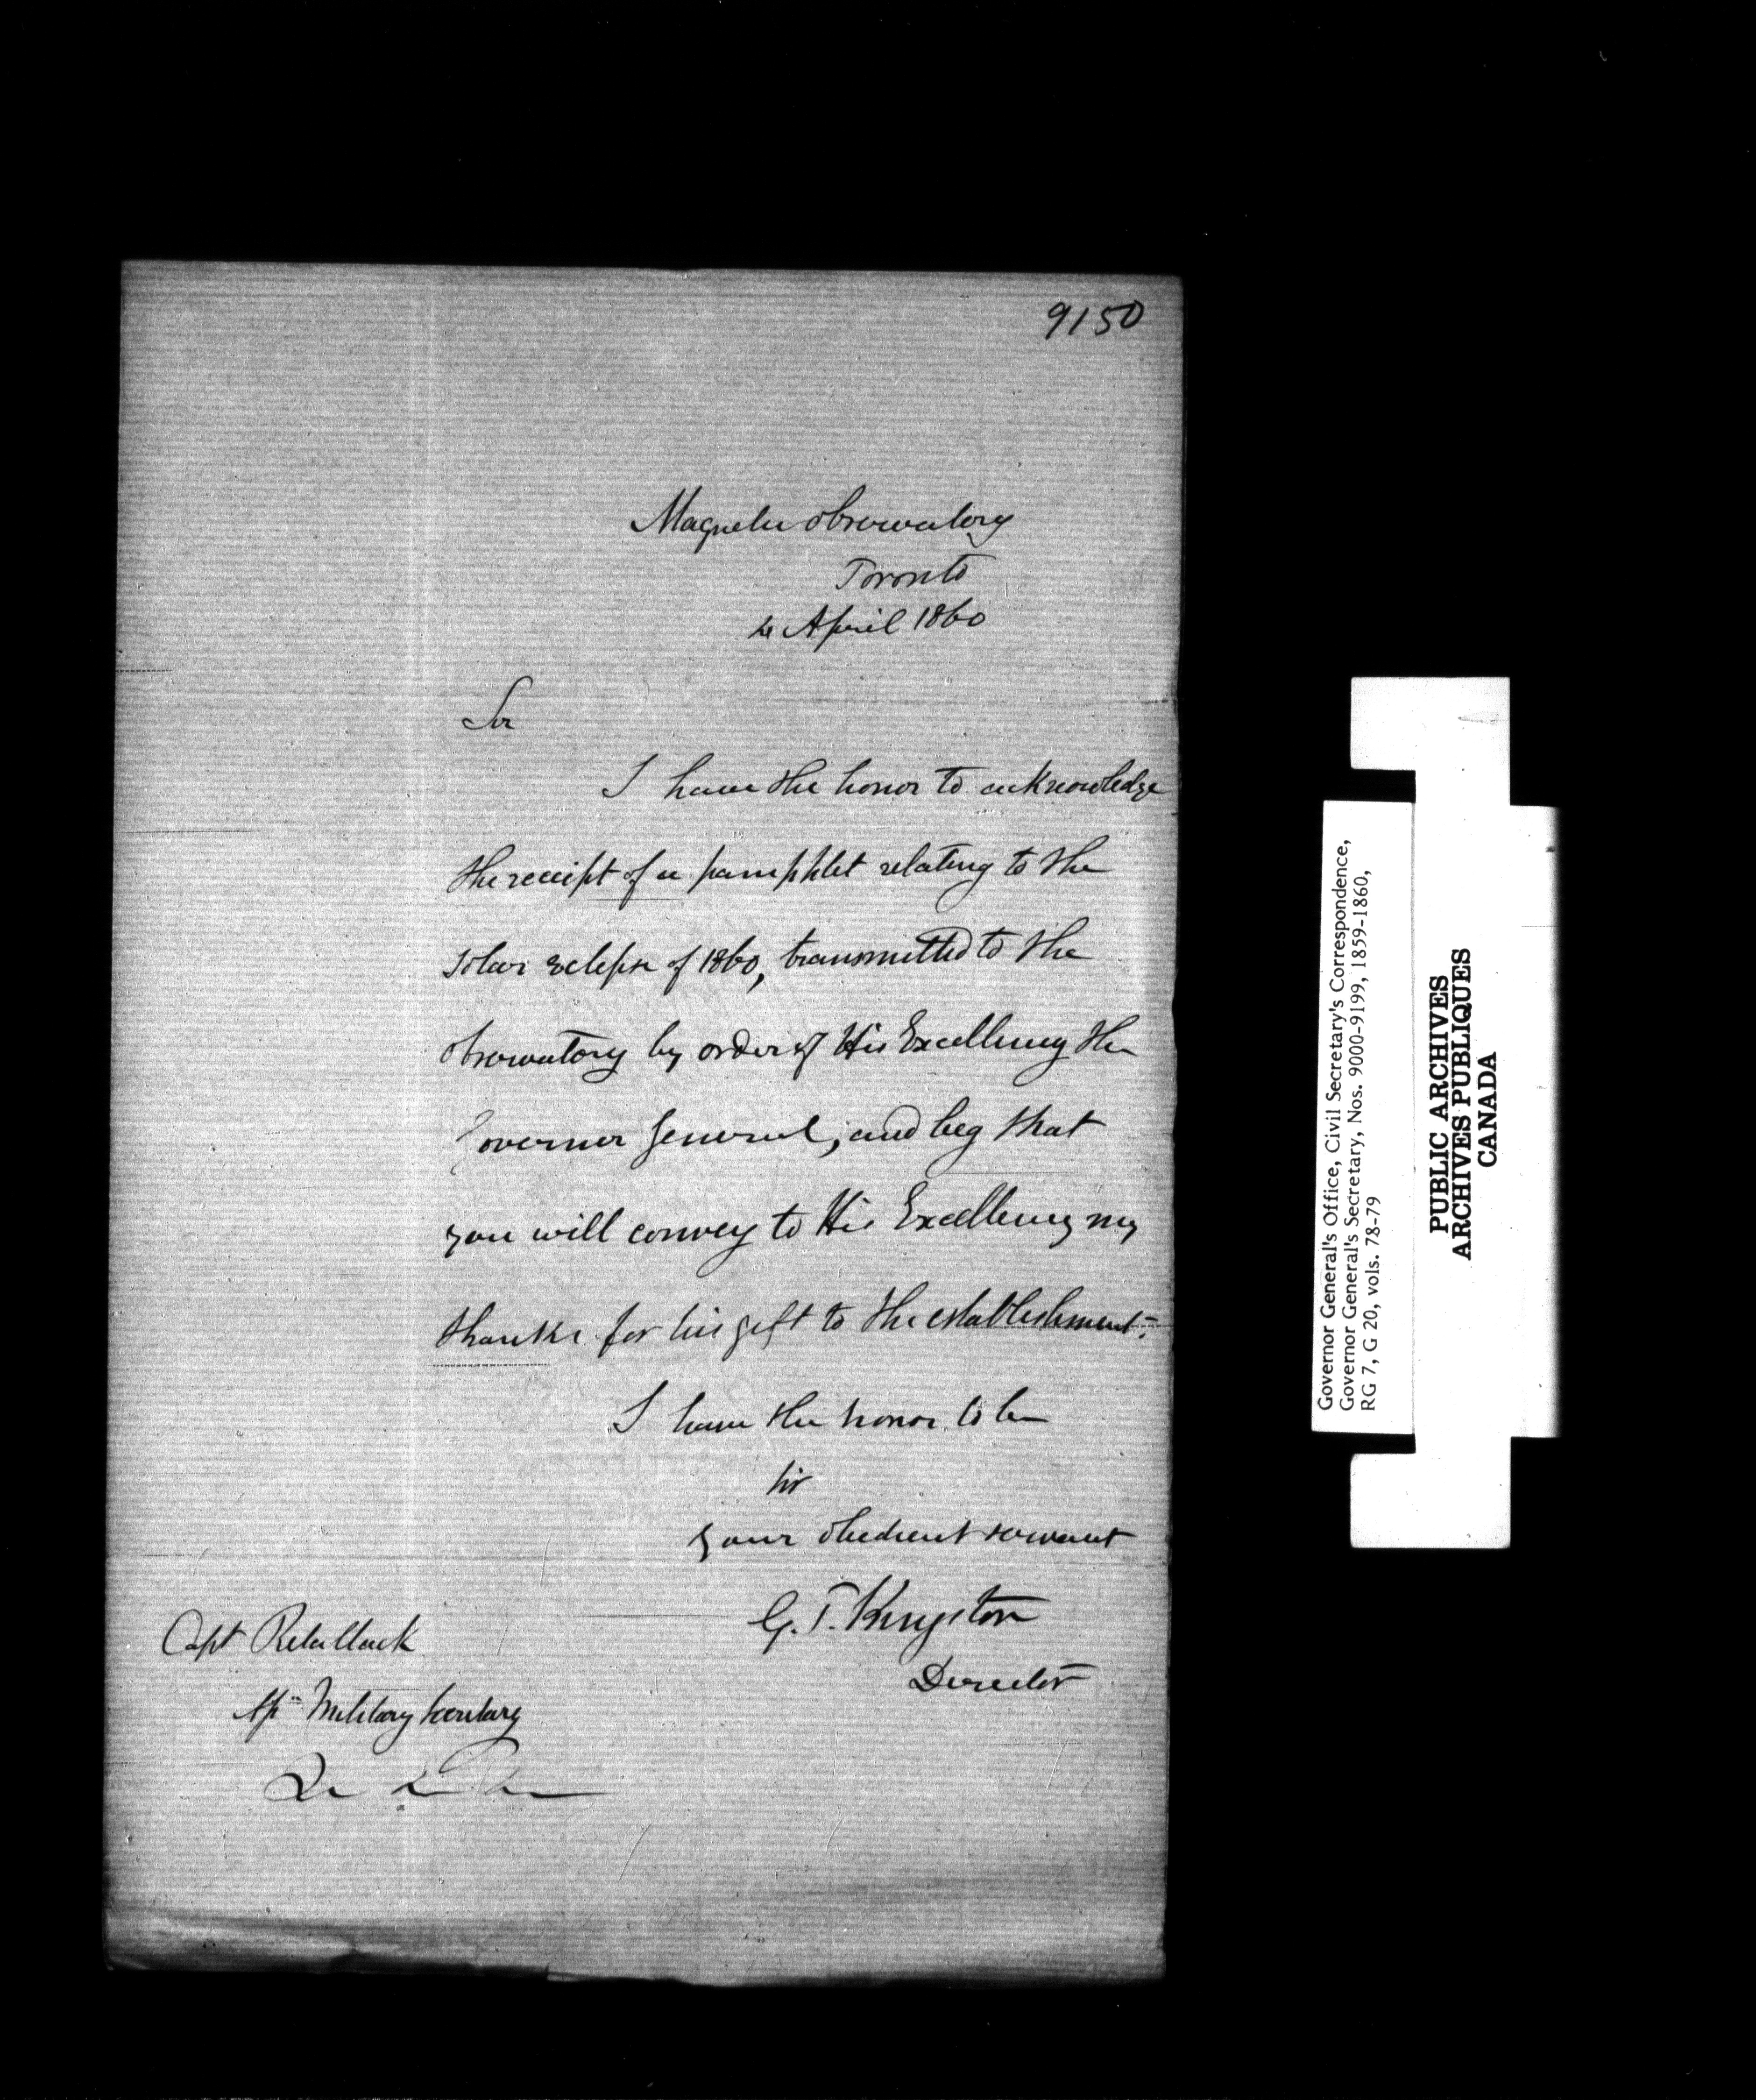 9150
Magnetic Observatory
Toronto
4 April 1860
Sir
I have the honor to acknowledge
the receipt of a pamphlet relating to the
solar eclipse of 1860, transmitted to the
observatory by order of His Excellency the
Governor General, and beg that
you will convey to His Excellency my
thanks for his gift to the establishment.
I have the honor to be
Sir
your obedient servant
G. T. Kingston
Director
Capt Retallack
Military Secretary
Governor General's Office, Civil Secretary's Correspondence,
Governor General's Secretary, Nos. 9000-9199, 1859-1860,
RG 7, G 20, vols. 78-79
PUBLIC ARCHIVES
ARCHIVES PUBLIQUES
CANADA